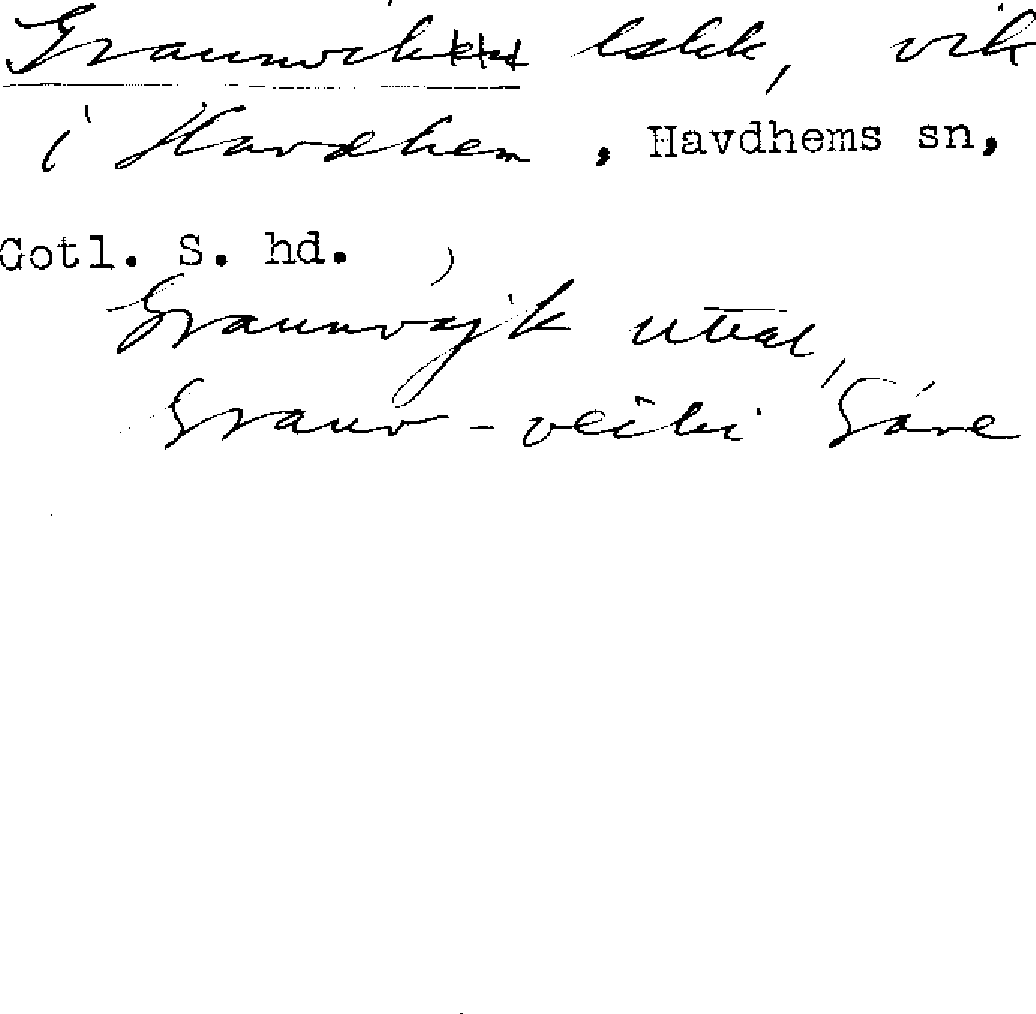 Graunvik lskk, vik
i Havdhem, Havdhems sn,
Gotl. S. hd.
Graunvajk uttal,
Graun-veiki Gåre